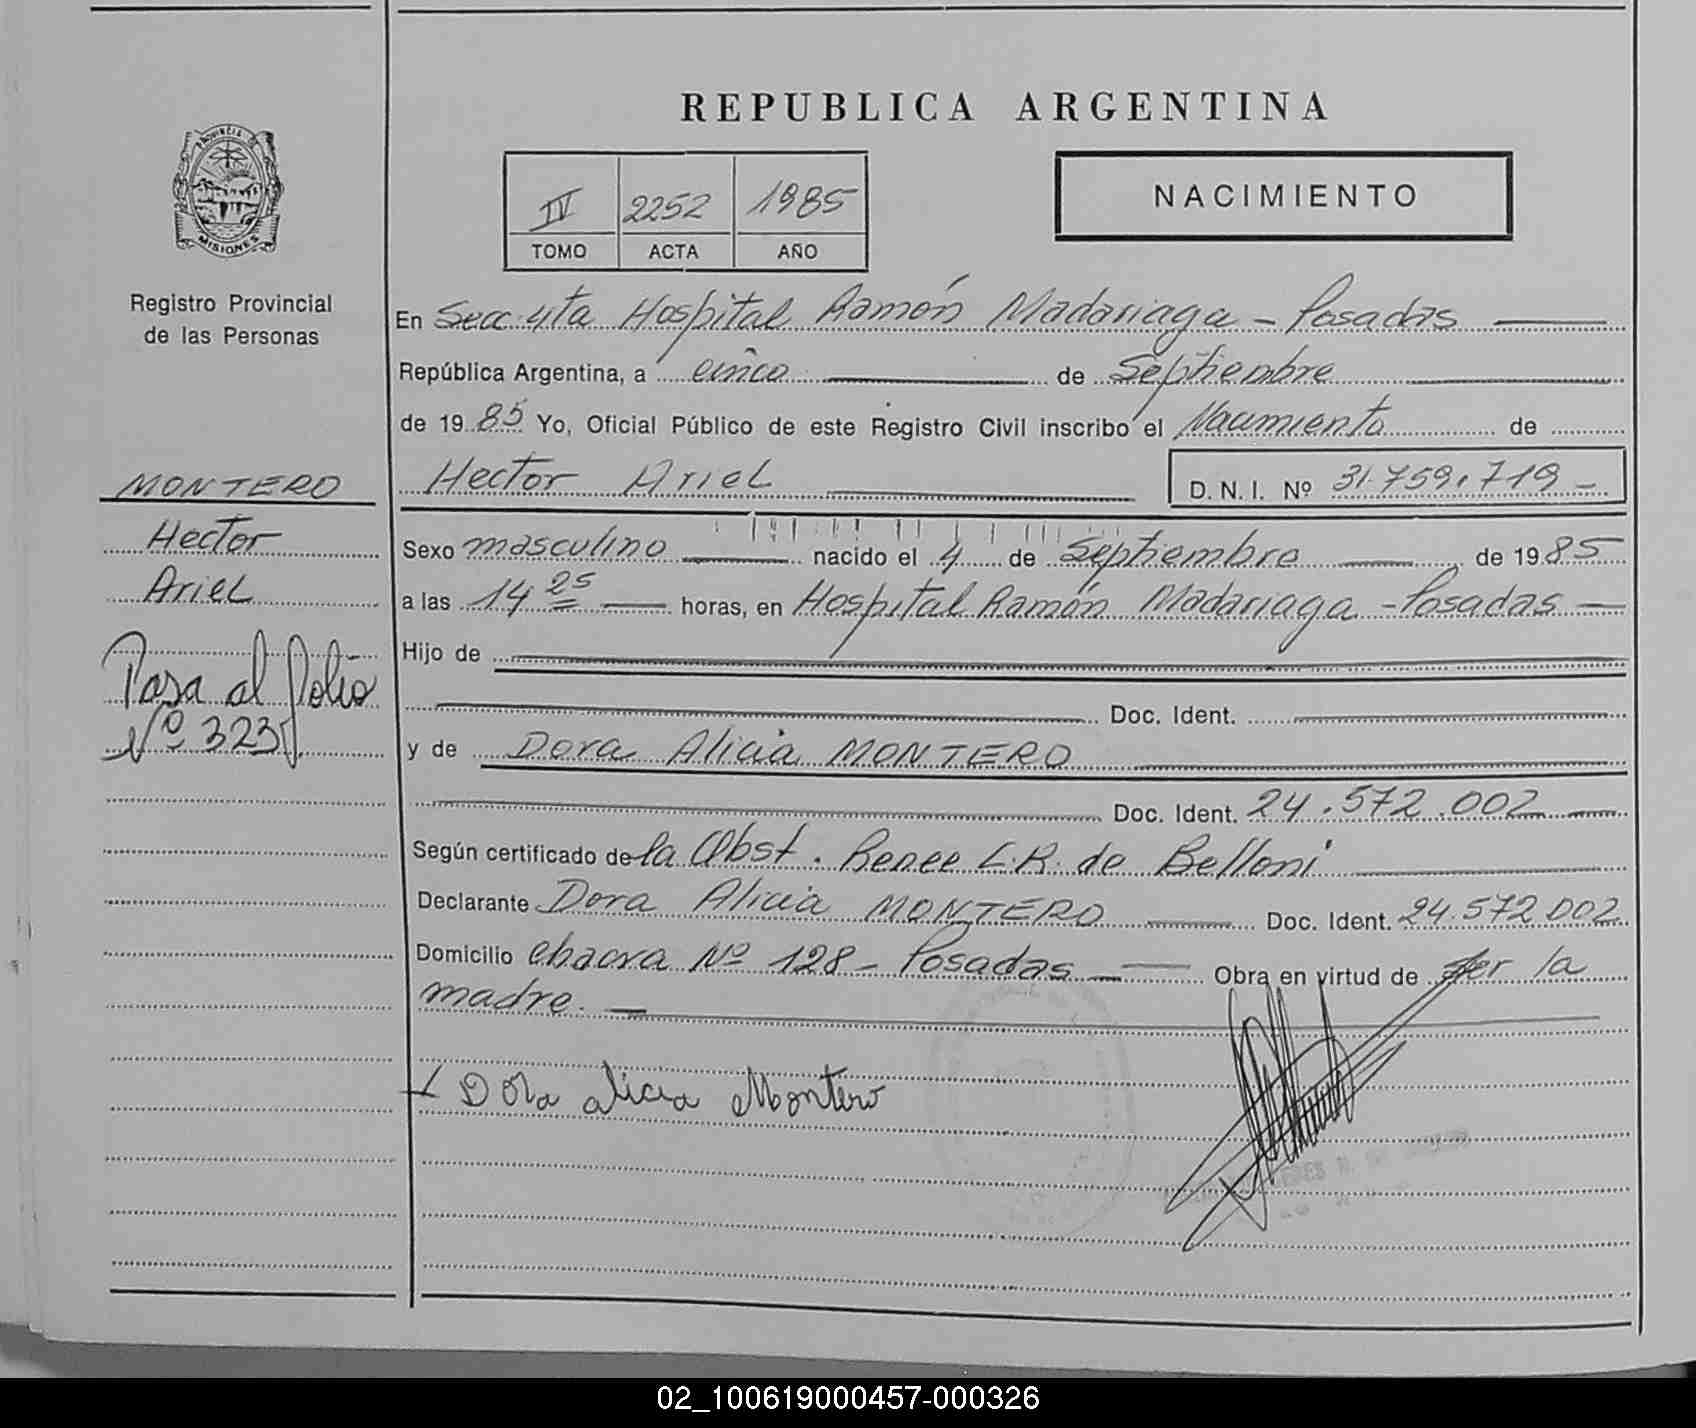 REPUBLICA ARGENTINA
PROVINCIA DE
MISIONES
Registro Provincial
de las Personas
IV 2252 1985
TOMO ACTA AÑO
NACIMIENTO
En Secc. 4ta Hospital Ramón Madariaga - Posadas
República Argentina, a cinco de Septiembre
de 1985 Yo, Oficial Público de este Registro Civil inscribo el Nacimiento de
Hector Ariel D. N. I. Nº 31.759.719
MONTERO
Hector
Ariel
Pasa al folio
Nº 323
Sexo masculino nacido el 4 de Septiembre de 1985
a las 14 25 horas, en Hospital Ramón Madariaga - Posadas
Hijo de
Doc. Ident.
y de Dora Alicia MONTERO
Doc. Ident. 24.572.002
Según certificado de la Obst. Renee L.R. de Belloni
Declarante Dora Alicia MONTERO Doc. Ident. 24.572.002
Domicilio chacra Nº 128 - Posadas Obra en virtud de ser la
madre.
Dora alicia Montero
02_100619000457-000326